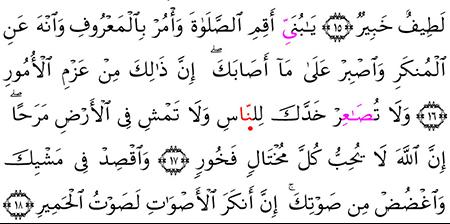 لَطِيفٌ خَبِيرٌ ١٥ يَٰبُنَيِّ أَقِمِ ٱلصَّلَوٰةَ وَأْمُرْ بِٱلْمَعْرُوفِ وَٱنْهَ عَنِ
ٱلْمُنكَرِ وَٱصْبِرْ عَلَىٰ مَآ أَصَابَكَ ۖ إِنَّ ذَٰلِكَ مِنْ عَزْمِ ٱلْأُمُورِ
١٦ وَلَا تُصَٰعِرْ خَدَّكَ لِلنَّاسِ وَلَا تَمْشِ فِى ٱلْأَرْضِ مَرَحًا ۖ
إِنَّ ٱللَّهَ لَا يُحِبُّ كُلَّ مُخْتَالٍ فَخُورٍ ١٧ وَٱقْصِدْ فِى مَشْيِكَ
وَٱغْضُضْ مِن صَوْتِكَ ۚ إِنَّ أَنكَرَ ٱلْأَصْوَٰتِ لَصَوْتُ ٱلْحَمِيرِ ١٨